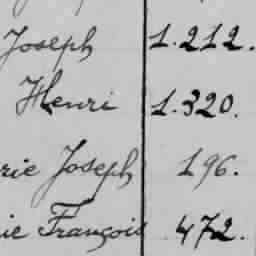 Joseph 1.212.
Henri 1.320.
rie Joseph 196.
ie François 472.